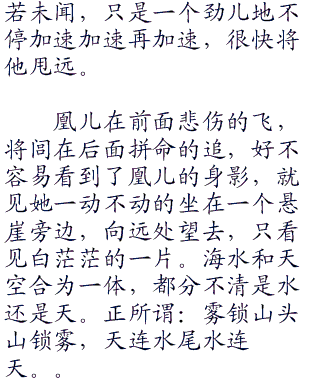 若未闻，只是一个劲儿地不
停加速加速再加速，很快将
他甩远。
凰儿在前面悲伤的飞，
将闾在后面拼命的追，好不
容易看到了凰儿的身影，就
见她一动不动的坐在一个悬
崖旁边，向远处望去，只看
见白茫茫的一片。海水和天
空合为一体，都分不清是水
还是天。正所谓：雾锁山头
山锁雾，天连水尾水连
天。。